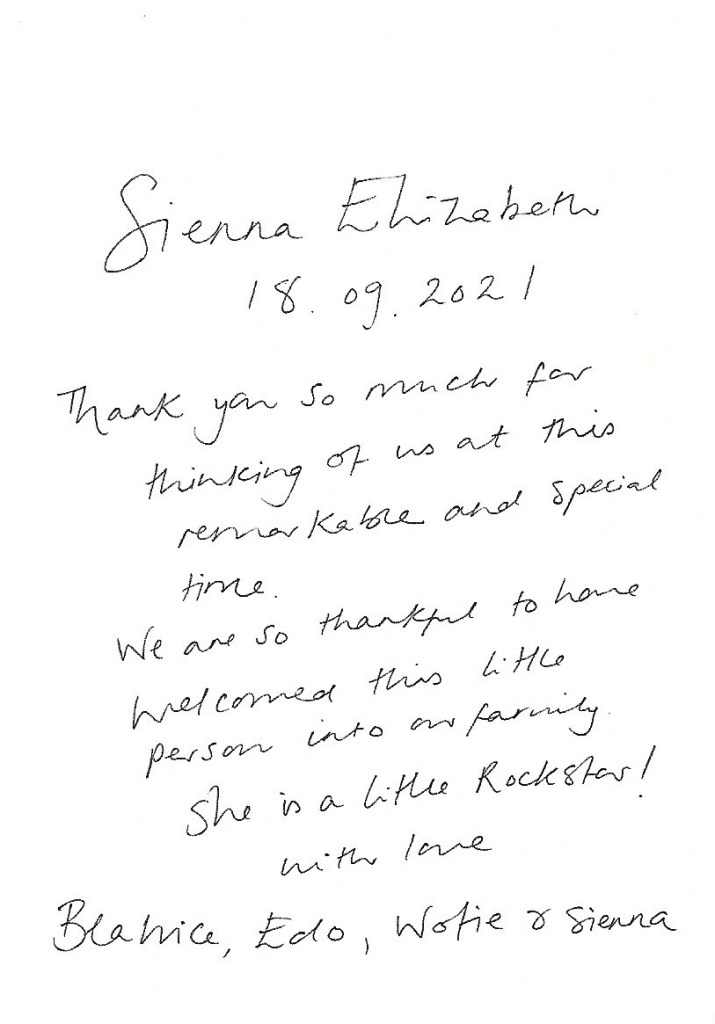 Sienna Elizabeth
18.09.2021
Thank you so much for
thinking of us at this
remarkable and special
time.
We are so thankful to have
welcomed this little
person into our family.
She is a little Rockstar!
with love
Beatrice, Edo, Wofie & Sienna